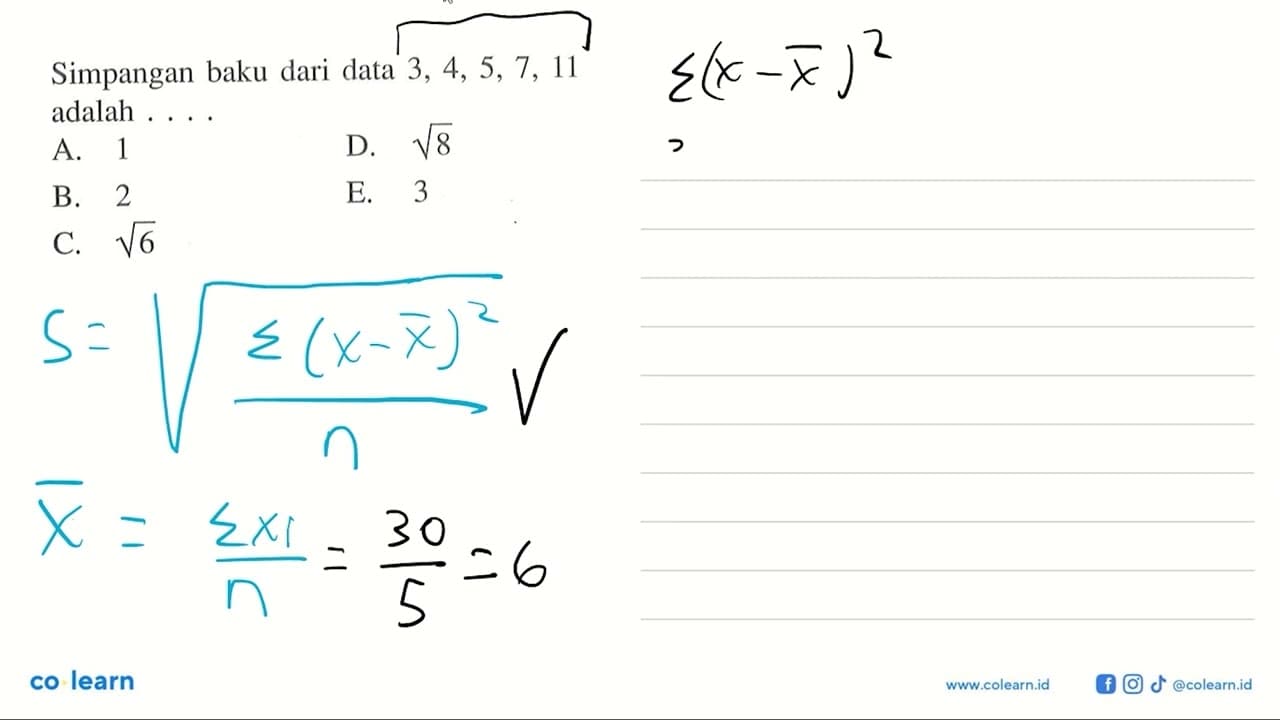 Simpangan baku dari data 3, 4, 5, 7, 11
adalah . . . .
A. 1
B. 2
C. √6
D. √8
E. 3
S = √(Σ(x - x̄)² / n) √
x̄ = Σxi / n = 30 / 5 = 6
Σ(x - x̄)²
co learn
www.colearn.id
@colearn.id